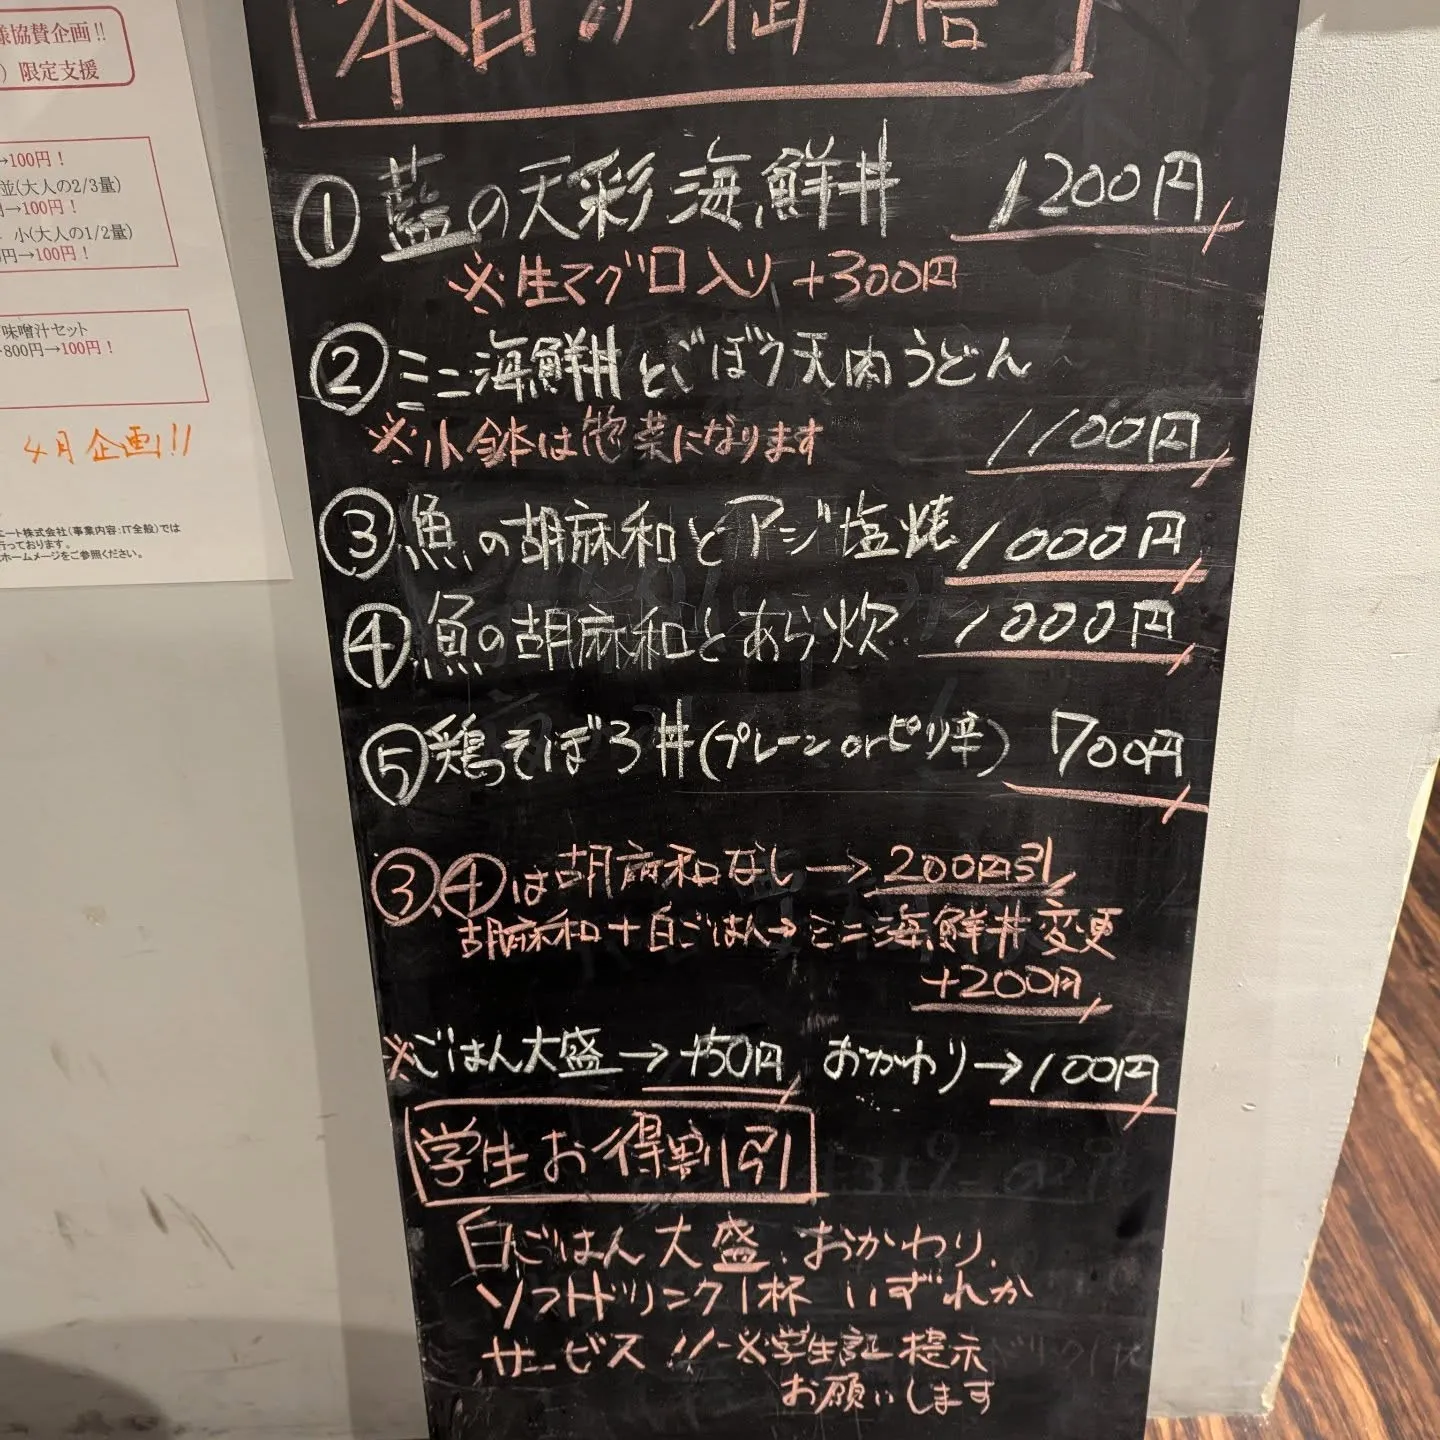 様協賛企画!!
）限定支援
→100円！
並(大人の2/3量)
円→100円！
小(大人の1/2量)
円→100円！
味噌汁セット
800円→100円！
4月企画!!
エート株式会社(事業内容:IT全般)では
行っております。
ホームメージをご参照ください。
本日の御膳
① 藍の天彩海鮮丼 1200円
※生マグロ入り +300円
② ミニ海鮮丼とごぼう天肉うどん
※小鉢は惣菜になります 1100円
③ 魚の胡麻和とアジ塩焼 1000円
④ 魚の胡麻和とあら炊 1000円
⑤ 鶏そぼろ丼(プレーンorピリ辛) 700円
③、④は胡麻和なし→200円引
胡麻和+白ごはん→ミニ海鮮丼変更
+200円
※ごはん大盛→+50円 おかわり→100円
学生お得割引
白ごはん大盛、おかわり、
ソフトドリンク1杯 いずれか
サービス!! ※学生証提示
お願いします